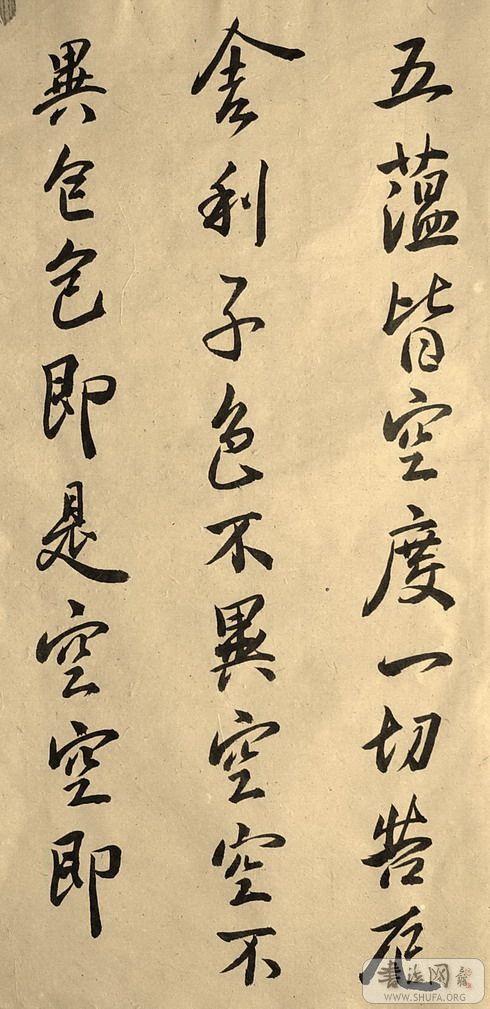 五蘊皆空度一切苦厄
舍利子色不異空空不
異色色即是空空即
書法网
WWW.SHUFA.ORG